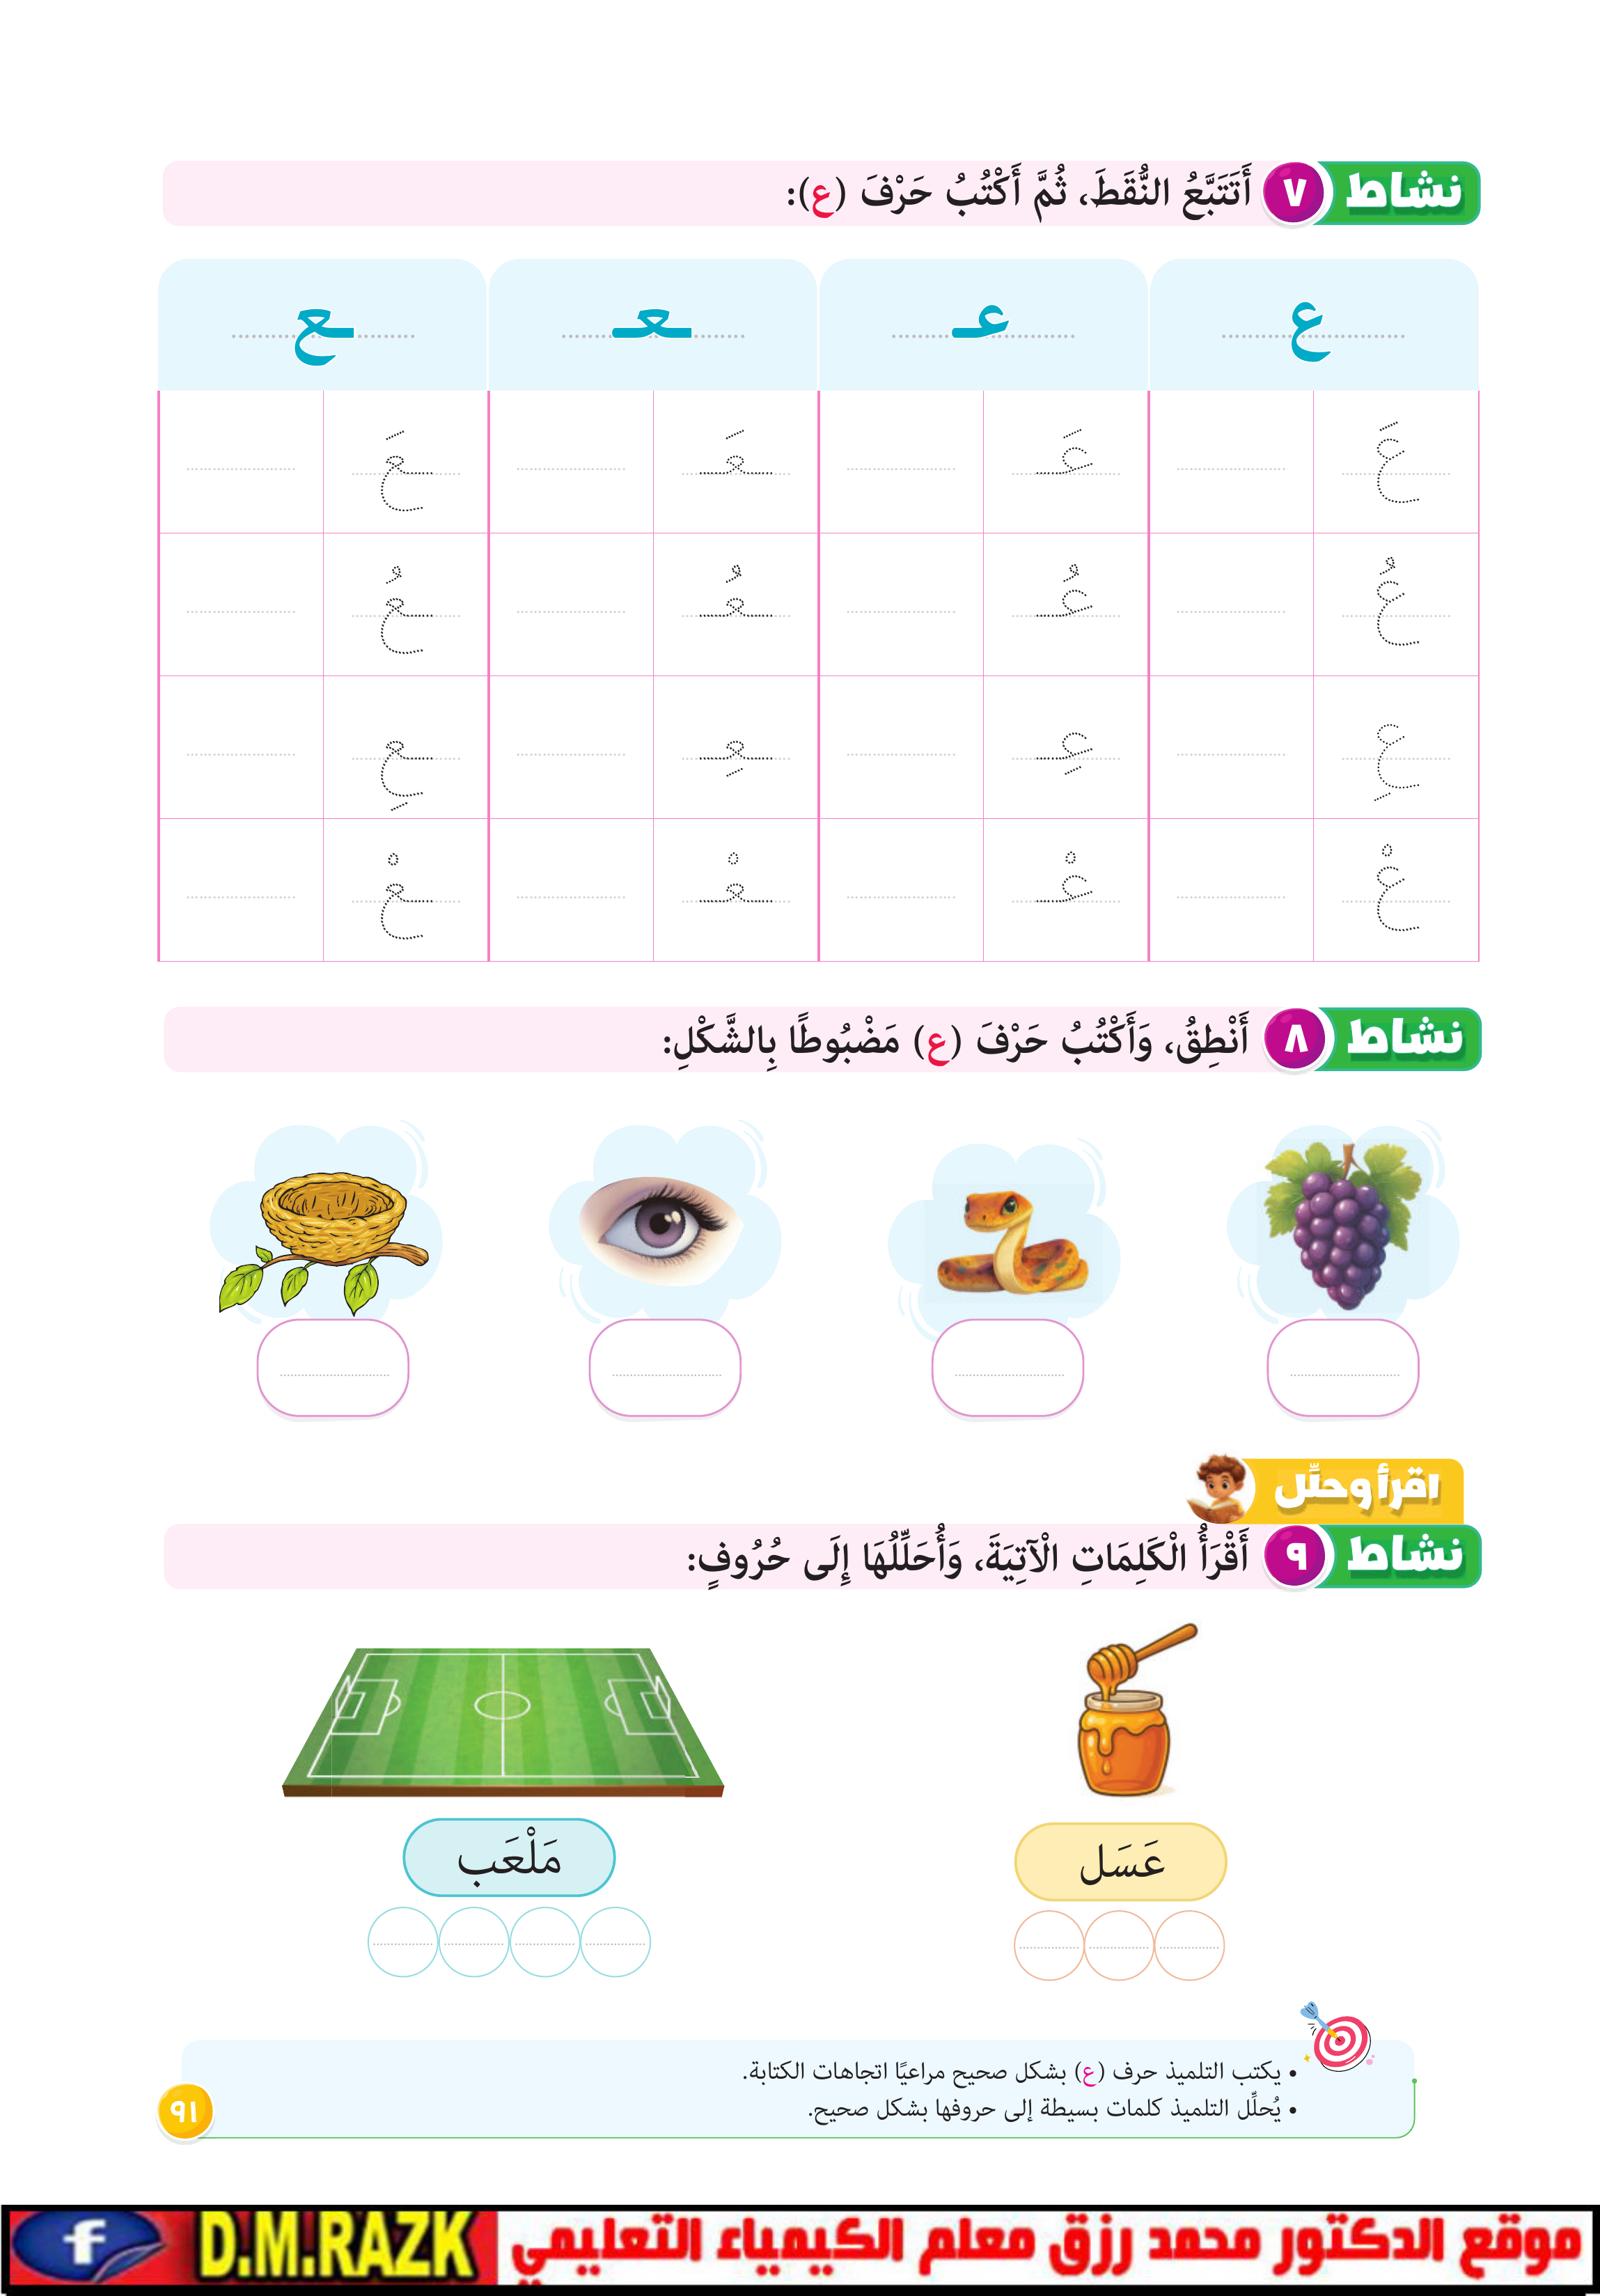 نشاط ٧ أَتَتَبَّعُ النُّقَطَ، ثُمَّ أَكْتُبُ حَرْفَ (ع):
ع عـ ـعـ ـع
عَ عَـ ـعَـ ـعَ
عُ عُـ ـعُـ ـعُ
عِ عِـ ـعِـ ـعِ
عْ عْـ ـعْـ ـعْ
نشاط ٨ أَنْطِقُ، وَأَكْتُبُ حَرْفَ (ع) مَضْبُوطًا بِالشَّكْلِ:
اقرأ وحلِّل
نشاط ٩ أَقْرَأُ الْكَلِمَاتِ الْآتِيَةَ، وَأُحَلِّلُهَا إِلَى حُرُوفٍ:
عَسَل مَلْعَب
• يكتب التلميذ حرف (ع) بشكل صحيح مراعيًا اتجاهات الكتابة.
• يُحلِّل التلميذ كلمات بسيطة إلى حروفها بشكل صحيح.
٩١
موقع الدكتور محمد رزق معلم الكيمياء التعليمي D.M.RAZK f